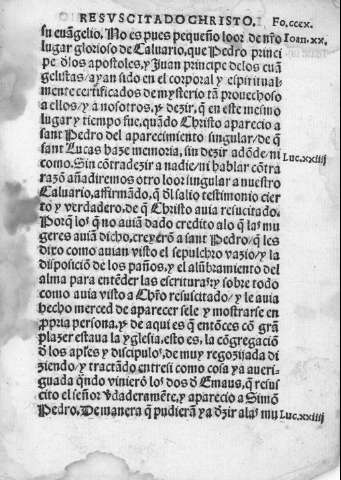 RESVSCITADO CHRISTO. Fo.cccx.
su euãgelio. No es pues pequeño loor de nr̃o Ioan.xx.
lugar glorioso de Caluario, que Pedro princi
pe d̃los apostoles, y Juan principe de los euã
gelistas / ayan sido en el corporal y espiritual-
mente certificados de mysterio tã prouechoso
a ellos / y a nosotros, y dezir, q̃ en este mesmo
lugar y tiempo fue, quãdo Christo aparecio a
sant Pedro del aparecimiento singular / de q̃
sant Lucas haze memoria, sin dezir adõde / ni Luc.xxiiij
como. Sin cõtradezir a nadie / ni hablar cõtra
razõ añadiremos otro loor singular a nuestro
Caluario, affirmãdo, q̃ d̃l salio testimonio cier
to y verdadero, de q̃ Christo auia resucitado.
Porq̃ los q̃ no auiã dado credito a lo q̃ las mu
geres auiã dicho, creyerõ a sant Pedro / q̃ les
dixo como auian visto el sepulchro vazio / y la
disposiciõ de los paños, y el alũbramiento del
alma para entẽder las escrituras: y sobre todo
como auia visto a Chr̃o resuscitado / y le auia
hecho merced de aparecersele y mostrarse en
propria persona, y de aqui es q̃ entõces cõ grã
plazer estaua la yglesia, esto es, la cõgregaciõ
d̃ los apl̃es y discipulos, de muy regozijada di
ziendo / y tractãdo entresi como cosa ya aueri-
guada q̃ndo vinierõ los dos d̃ Emaus, q̃ resus
cito el señor ṽdaderamẽte, y aparecio a Simõ
Pedro. De manera q̃ pudierã ya d̃zir a las mu Luc.xxiiij